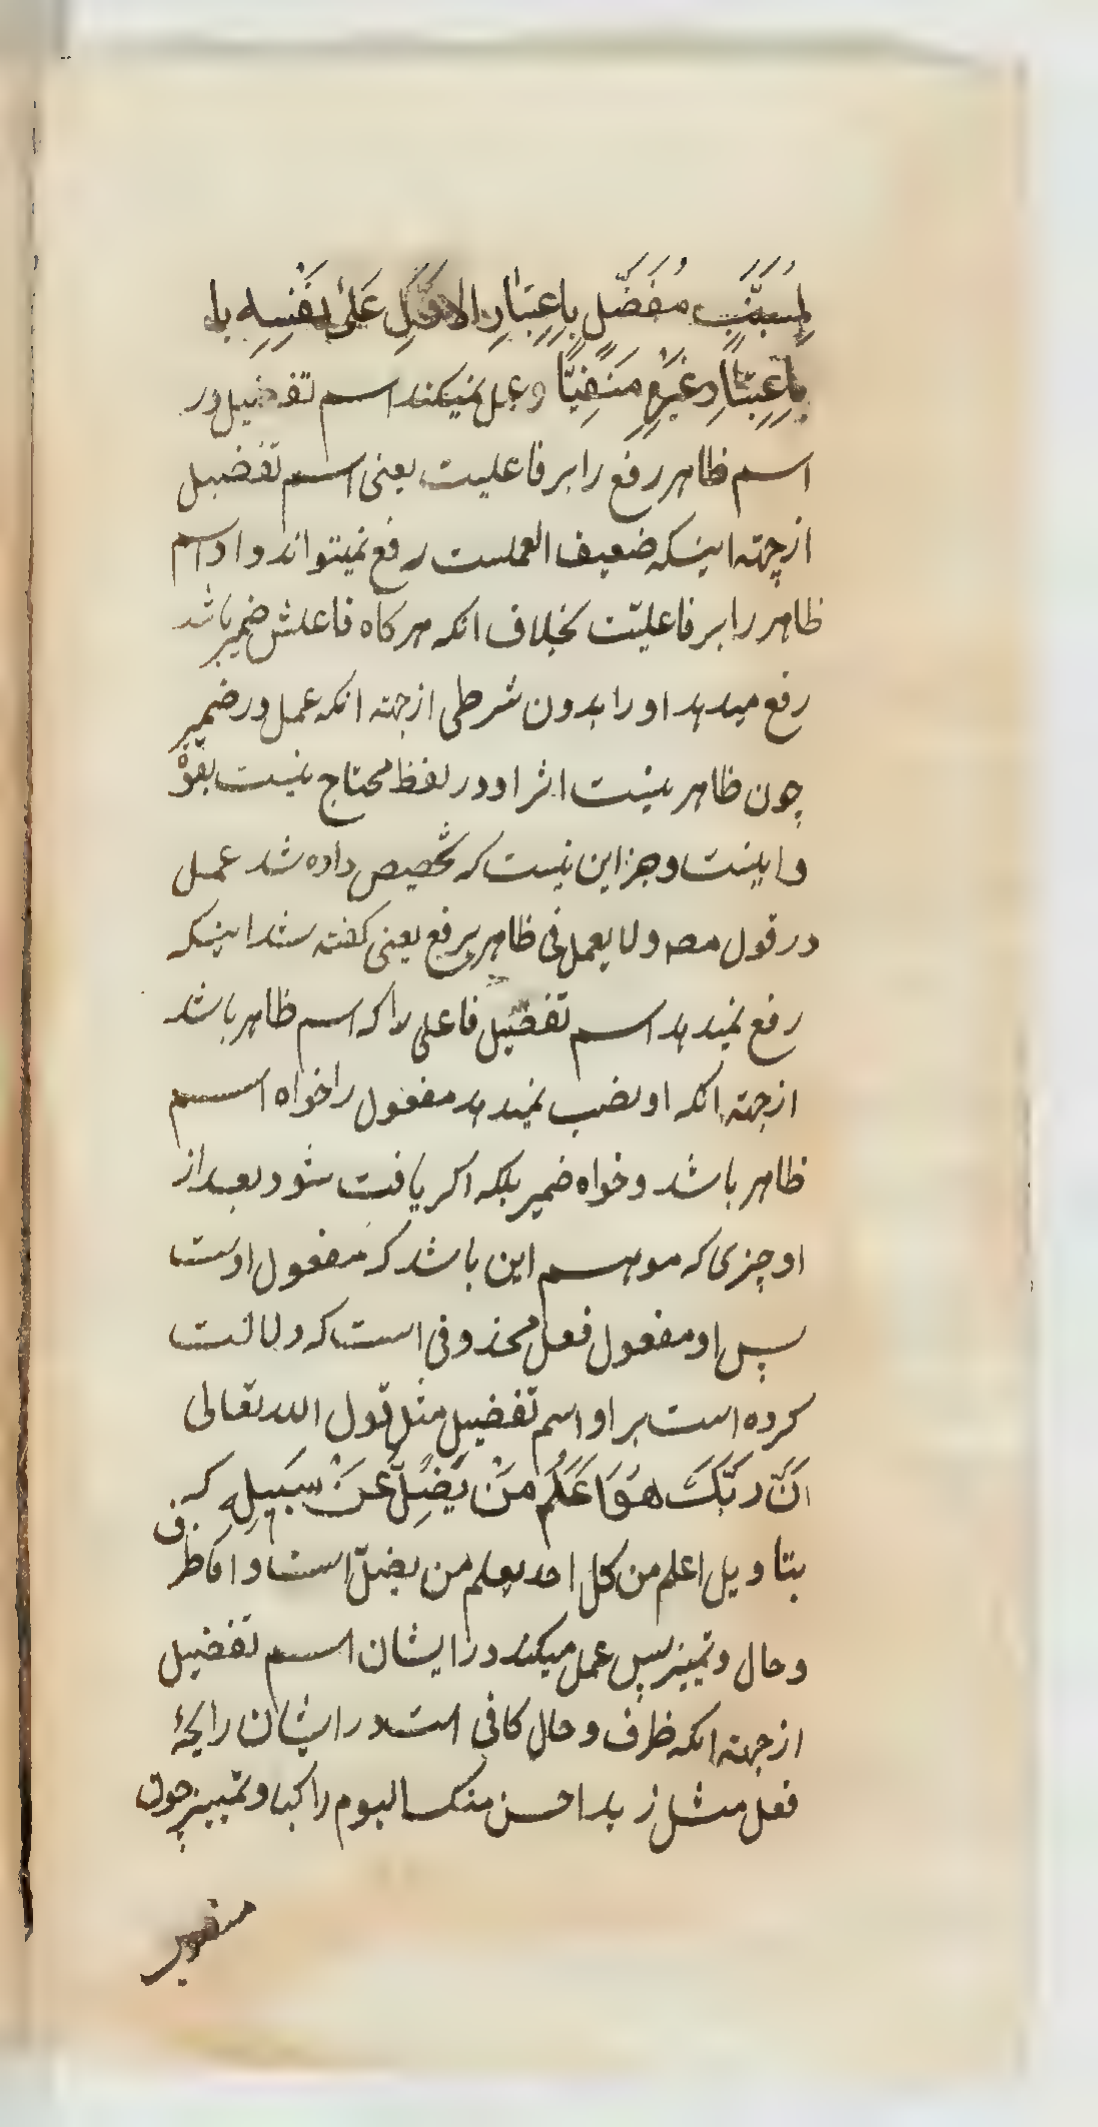 لِمُسَبَّبٍ مُفَضَّلٍ بِاعِتبَارِ الاوَّلِ عَلىٰ نَفْسِهِ با
بِاِعِتبَارِ غَيْرِهِ مَنَفِيًّا و عمل نمیکند اسم تفضیل در
اسم ظاهر رفع را بر فاعلیت یعنی اسم تفضیل
از جهته اینکه ضعیف العملست رفع نمیتواند داد اسم
ظاهر را بر فاعلیّت بخلاف انکه هر کاه فاعلش ضمیر باشد
رفع میدهد او را بدون شرطی از جهته انکه عمل در ضمیر
چون ظاهر نیست اثر او در لفظ محتاج نیست بقوّة
و اینست و جز این نیست که تخصیص داده شد عمل
در قول مصه ولا یعمل فی ظاهر برفع یعنی کفته شد اینکه
رفع نمیدهد اسم تفضیل فاعلی را که اسم ظاهر باشد
از جهته انکه او نصب نمیدهد مفعول را خواه اسم
ظاهر باشد و خواه ضمیر بلکه اکر یافت شود بعد از
او چیزی که موهم این باشد که مفعول اوست
پس او مفعول فعل محذوفی است که دلالت
کرده است بر او اسم تفضیل مثل قول الله تعالی
اَنَّ رَبَّكَ هُوَ اَعَلَمُ مَنْ يَضِلُّ عَنْ سَبَيلِهِ که
بتاویل اعلم من کل احد یعلم من یضلّ است و اما ظرف
و حال و تمییز پس عمل میکند در ایشان اسم تفضیل
از جهته انکه ظرف و حال کافی است در ایشان رایحهٔ
فعل مثل زید احسن منک الیوم راکبا و تمییز چون